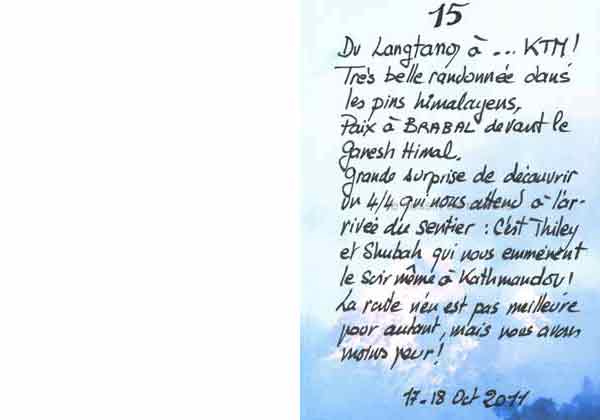 15
Du Langtang à ... KTM!
Très belle randonnée dans
les pins himalayens,
Paix à BRABAL devant le
Ganesh Himal.
Grande surprise de découvrir
un 4/4 qui nous attend à l'ar-
rivée du sentier : C'est Thiley
et Shubah qui nous emmènent
le soir même à Kathmandou!
La route n'en est pas meilleure
pour autant, mais nous avons
moins peur!
17-18 Oct 2011